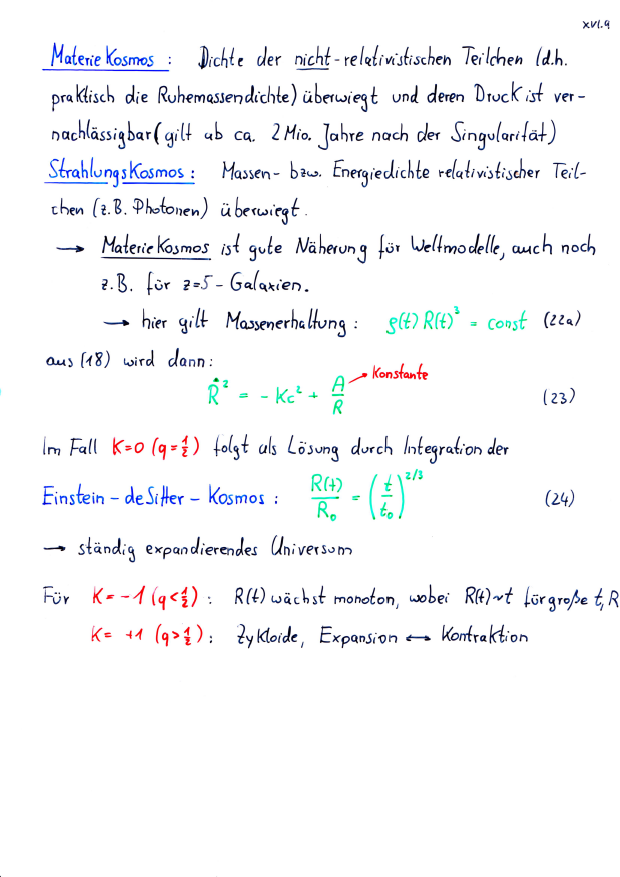 XVI.9
MaterieKosmos : Dichte der nicht-relativistischen Teilchen (d.h.
praktisch die Ruhemassendichte) überwiegt und deren Druck ist ver-
nachlässigbar (gilt ab ca. 2 Mio. Jahre nach der Singularität)
StrahlungsKosmos : Massen- bzw. Energiedichte relativistischer Teil-
chen (z.B. Photonen) überwiegt.
→ MaterieKosmos ist gute Näherung für Weltmodelle, auch noch
z.B. für z=5 - Galaxien.
→ hier gilt Massenerhaltung : ρ(t) R(t)³ = const (22a)
aus (18) wird dann :
Ṙ² = - Kc² + A/R → Konstante (23)
Im Fall K=0 (q=½) folgt als Lösung durch Integration der
Einstein - deSitter - Kosmos : R(t)/R₀ = (t/t₀)^2/3 (24)
→ ständig expandierendes Universum
Für K=-1 (q<½) : R(t) wächst monoton, wobei R(t)~t für große t, R
K= +1 (q>½) : Zykloide, Expansion ↔ Kontraktion